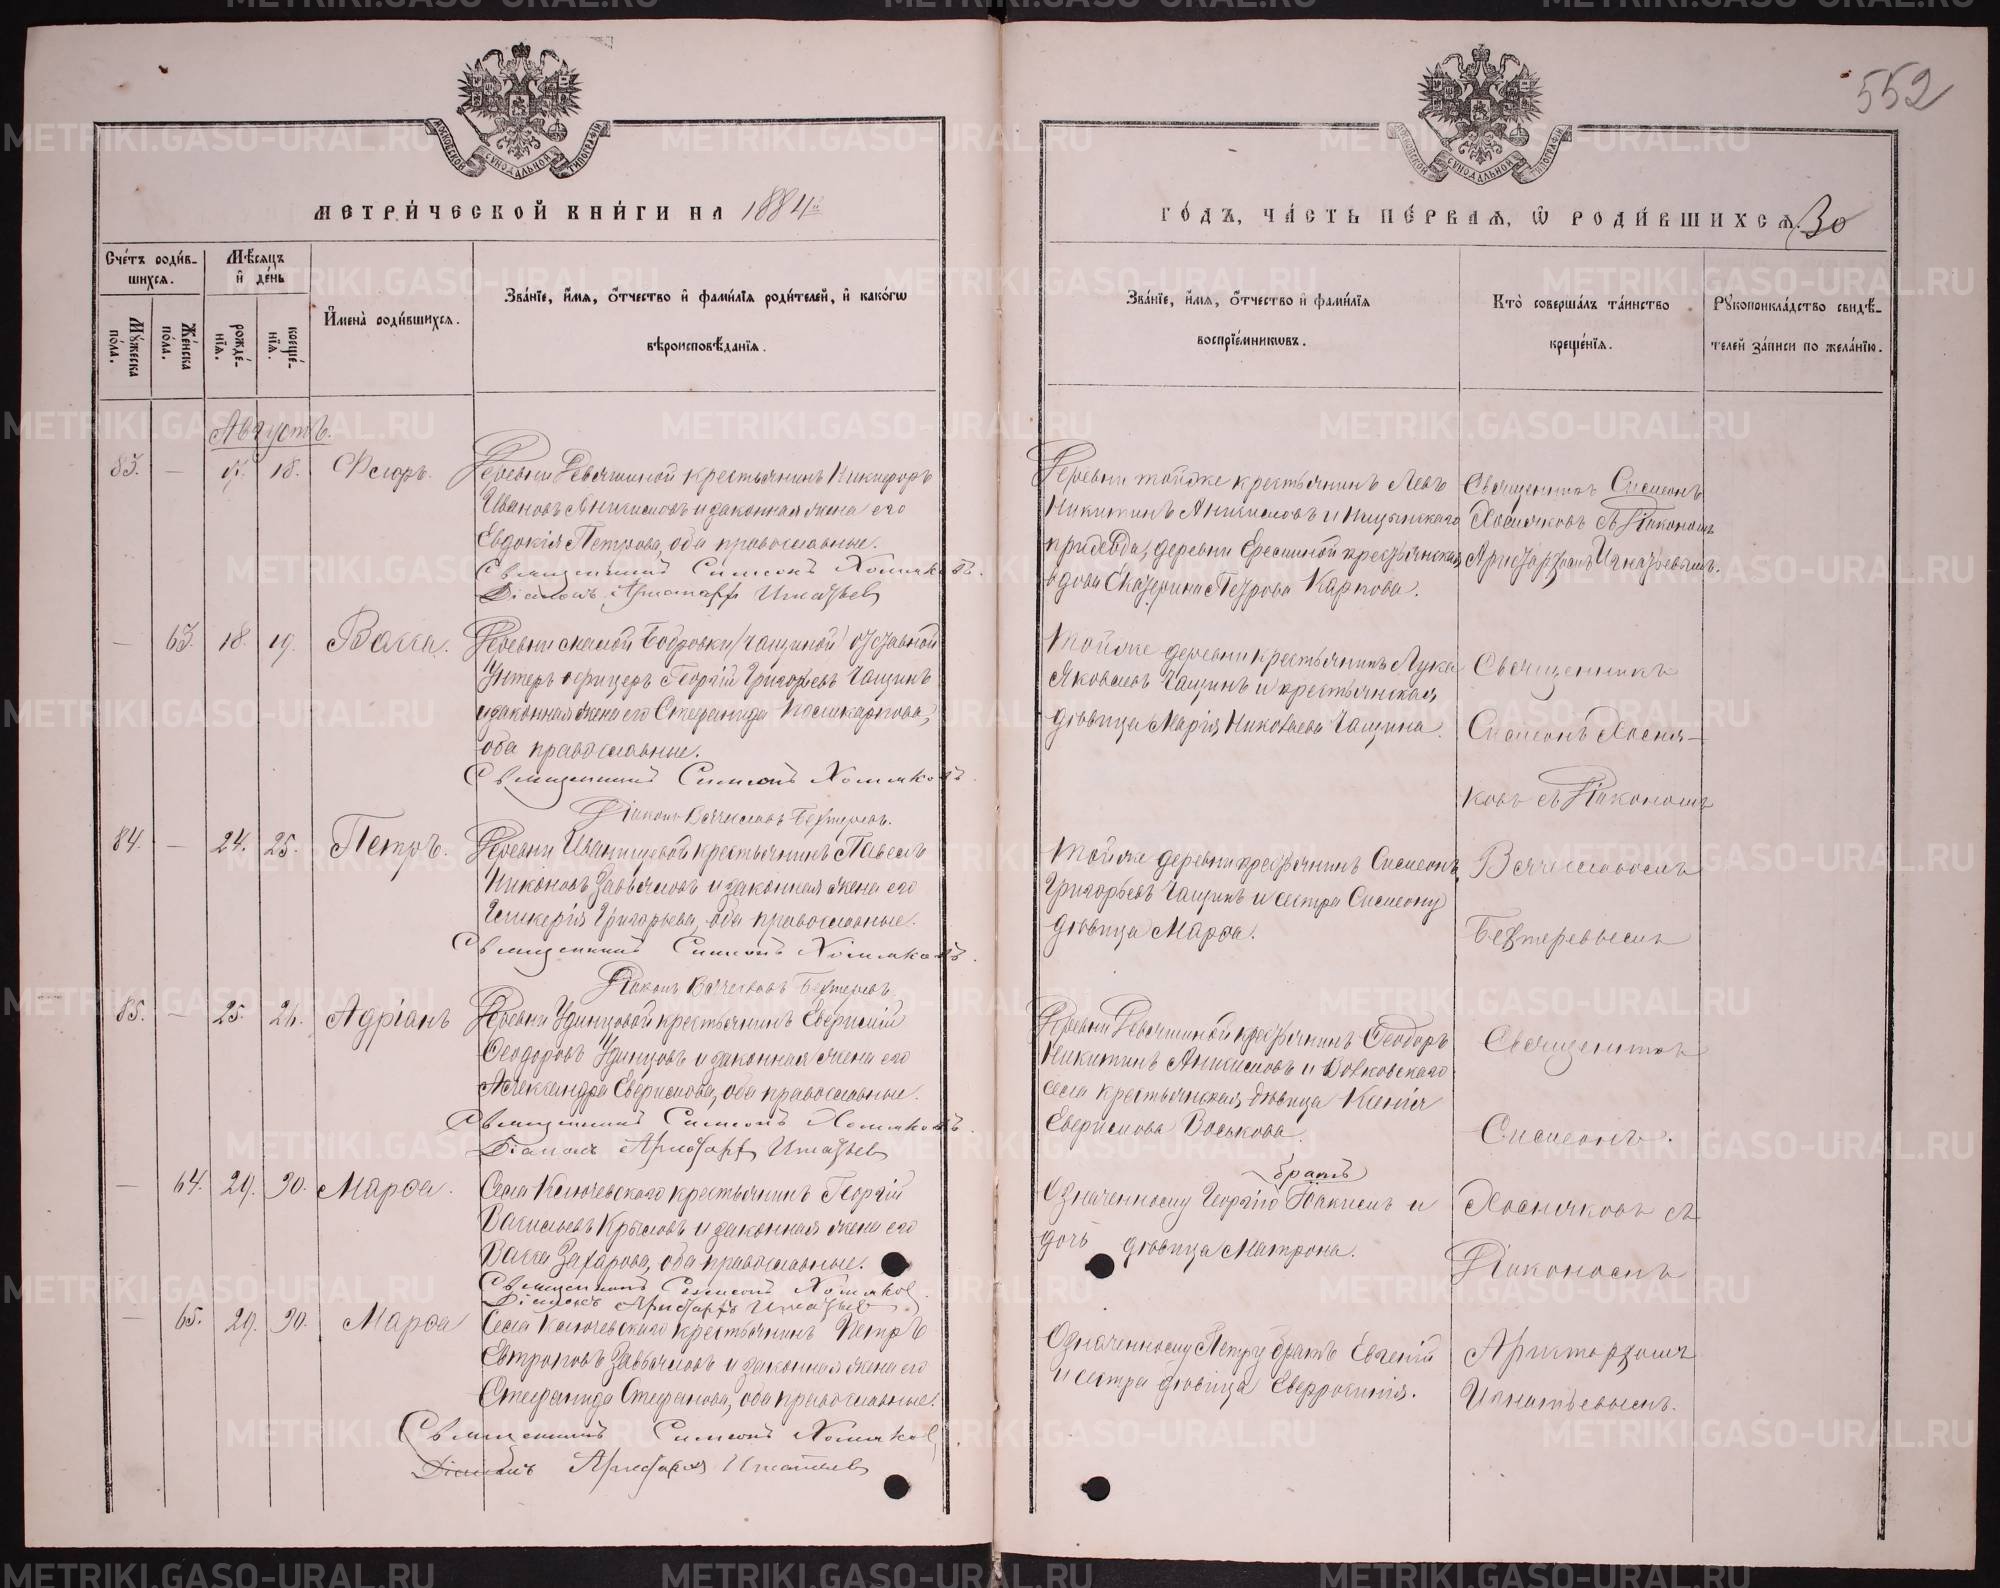 552
МОСКОВСКОЙ СУНОДАЛЬНОЙ ТИПОГРАФІИ
МОСКОВСКОЙ СУНОДАЛЬНОЙ ТИПОГРАФІИ
МЕТРИ́ЧЕСКОЙ КНИ́ГИ НА 1884й
ГО́ДЪ, ЧА́СТЬ ПЕ́РВАѦ, Ѡ РОДИ́ВШИХСѦ. 30
Сче́тъ роди́в-
шихсѧ.
Мѣ́сѧцъ
и҆ де́нь
И҆мена̀ роди́вшихсѧ.
Зва́нїе, и҆́мѧ, ѻ҆́тчество и҆ фами́лїѧ роди́телей, и҆ како́гѡ
вѣроисповѣ́данїѧ.
Мꙋ́жеска по́ла.
Же́нска по́ла.
рожде́-
нїѧ.
креще́-
нїѧ.
Зва́нїе, и҆́мѧ, ѻ҆́тчество и҆ фами́лїѧ
воспрїе́мникѡвъ.
Кто̀ соверша́лъ та́инство
креще́нїѧ.
Рꙋкоприкла́дство свидѣ́-
телей за́писи по жела́нїю.
Августъ.
83. — 18. Ѳеодоръ.
Деревни Ревяшиной крестьянинъ Никифоръ
Ивановъ Анисимовъ и законная жена его
Евдокія Петрова, оба православные.
Священникъ Симеонъ Хомяковъ.
Діаконъ Аристархъ Игнатьевъ
Деревни тойже крестьянинъ Левъ
Никитинъ Анисимовъ и Ницынскаго
деревни Ересиной крестьянская
вдова Екатерина Петрова Карпова.
Священникъ Симеонъ
Хомяковъ съ Діакономъ
Аристархомъ Игнатьевымъ.
— 63. 18. 19. Васса.
Деревни малой Бобровки (Чащиной) отставной
Унтеръ офицеръ Георгій Григорьевъ Чащинъ
и законная жена его Стефанида Поликарпова,
оба православные.
Священникъ Симеонъ Хомяковъ.
Діаконъ Вячеславъ Бехтеревъ.
Тойже деревни крестьянинъ Лука
Яковлевъ Чащинъ и крестьянская
дѣвица Марія Николаева Чащина.
Священникъ
Симеонъ Хомя-
ковъ съ Діакономъ
84. — 24. 25. Петръ.
Деревни Иванищевой крестьянинъ Павелъ
Никоновъ Завьяловъ и законная жена его
Гликерія Григорьева, оба православные.
Священникъ Симеонъ Хомяковъ.
Діаконъ Вячеславъ Бехтеревъ
Тойже деревни крестьянинъ Симеонъ
Григорьевъ Чащинъ и сестра Симеону
дѣвица Марѳа.
Вячеславомъ
Бехтеревымъ
85. — 25. 26. Адріанъ
Деревни Удинцовой крестьянинъ
Ѳеодоровъ Удинцовъ и законная жена его
Александра оба православные.
Священникъ Симеонъ Хомяковъ.
Діаконъ Аристархъ Игнатьевъ
Деревни Ревяшиной крестьянинъ Ѳеодоръ
Никитинъ Анисимовъ и Волковскаго
села крестьянская дѣвица Ксенія
Воськова.
Священникъ
Симеонъ.
— 64. 29. 30. Марѳа.
Села Ключевскаго крестьянинъ Георгій
Васильевъ Крыловъ и законная жена его
Васса Захарова, оба православные.
Священникъ Симеонъ Хомяковъ.
Діаконъ Аристархъ Игнатьевъ
братъ
Означенному Георгію Іоакимъ и
дочь дѣвица Матрона.
Хомяковъ съ
Діакономъ
— 65. 29. 30. Марѳа
Села Ключевскаго крестьянинъ Петръ
Евтроповъ Завьяловъ и законная жена его
Стефанида Стефанова, оба православные.
Священникъ Симеонъ Хомяковъ
Діаконъ Аристархъ Игнатьевъ
Означенному Петру братъ Евгеній
и сестра дѣвица
Аристархомъ
Игнатьевымъ.
METRIKI.GASO-URAL.RU